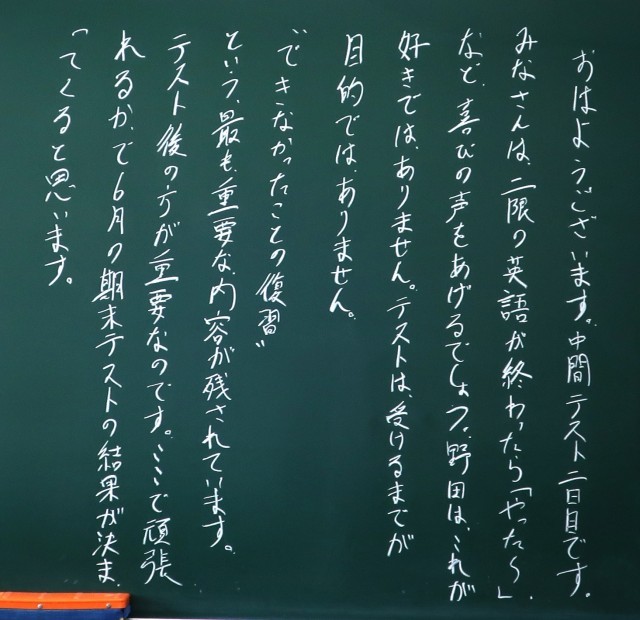 おはようございます。中間テスト二日目です。
みなさんは、二限の英語が終わったら「やった〜」
など、喜びの声をあげるでしょう。野田は、これが
好きではありません。テストは、受けるまでが
目的では、ありません。
"できなかったことの復習"
という、最も重要な内容が残されています。
テスト後の方が重要なのです。ここで頑張
れるか、で6月の期末テストの結果が決ま
「てくると思います。